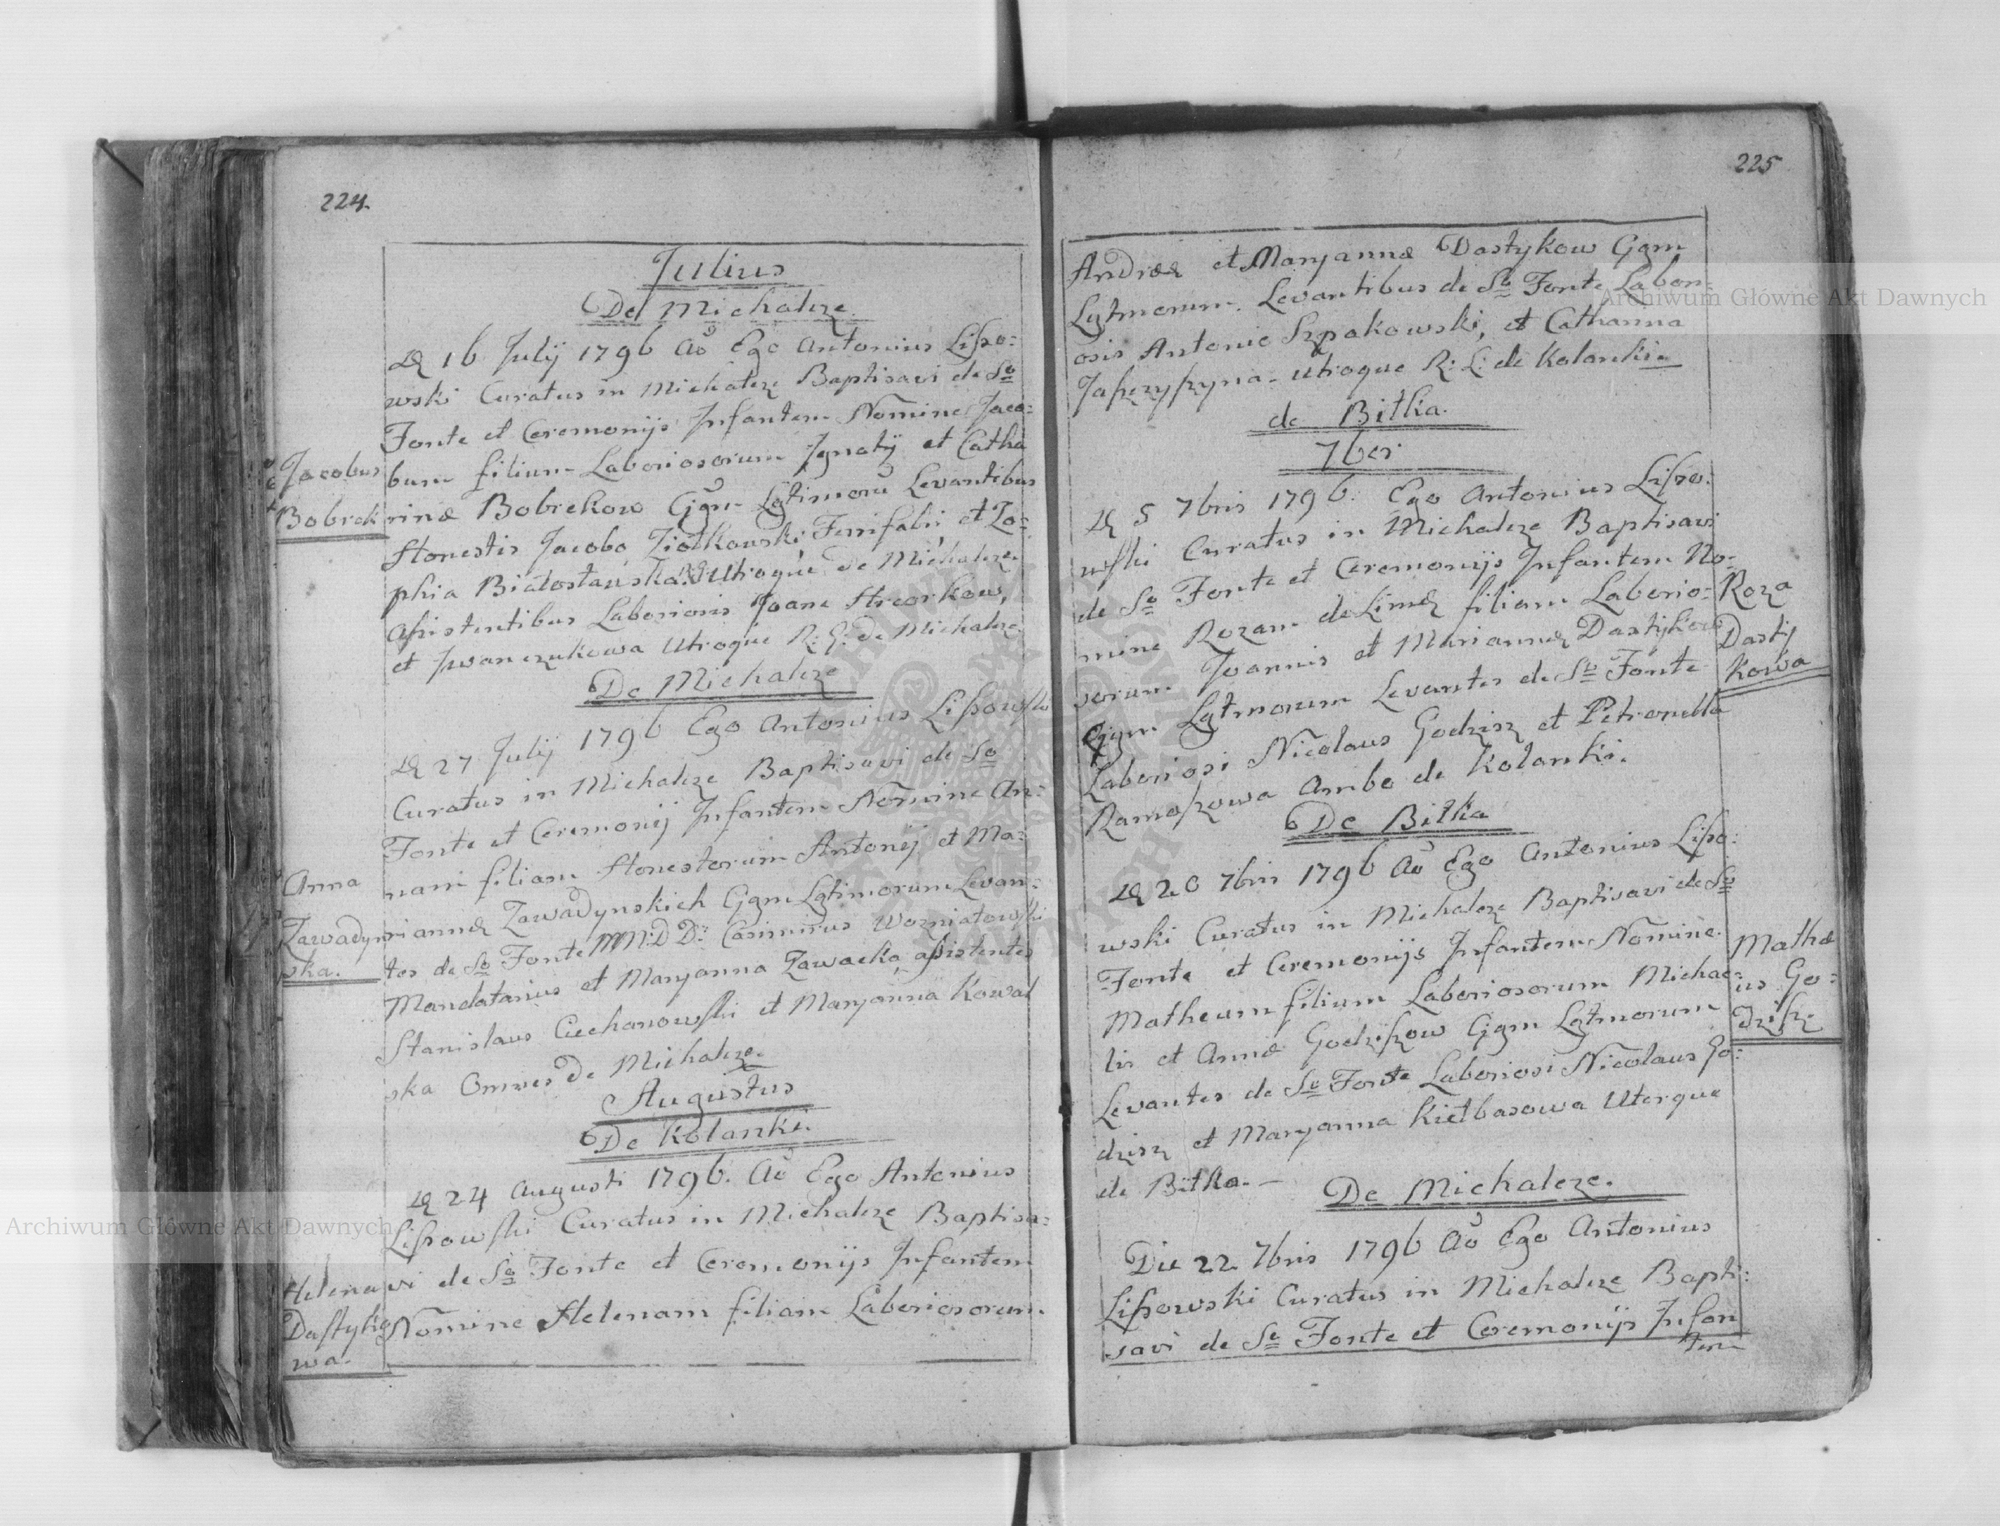 224.
Julius
De Michalcze
16 Julij 1796 Aõ Ego Antonius Lisso:
wski Curatus in Michalcze Baptisavi de So
Fonte et Ceremonijs Infantem Nomine Jaco:
bum filium Laboriosorum Ignatij et Catha
rinæ Bobrekow Cjgm Lgtimorũ Levantibus
Honestis Jacobo Ziołkowski Ferrifabri et Zo:
phia Białosławska Utroque de Michalcze.
Assistentibus Laboriosis Joane Hreorkow,
et Iwanczukowa Utroque R: G: de Michalcze
Jacobus
Bobrek
De Michalcze
27 Julij 1796 Ego Antonius Lissowski
Curatus in Michalcze Baptisavi de So
Fonte et Ceremonij Infantem Nomine An:
nam filiam Honestorum Antonij et Ma:
riannæ Zawadynskich Cjgm Lgtimorum Levan:
tes de So Fonte MM: DD: Casimirus Wozniatowski
Mandatarius et Maryanna Zawacka, assistentes
Stanislaus Ciechanowski et Maryanna Kowal
ska Omnes de Michalcze.
Anna
Zawadyn
ska.
Augustus
De Kolanki.
24 Augusti 1796. Aõ Ego Antonius
Lissowski Curatus in Michalcze Baptisa:
vi de So Fonte et Ceremonijs Infantem
Nomine Helenam filiam Laboriosorum
Helena
Dastyko
wa.
225
Andreæ et Maryannæ Dastykow Cjgm
Lgtmorum. Levantibus de So Fonte Labori
osis Antonio Szpakowski, et Catharina
utroque R: L: de Kolanki.
de Bitka.
7ber
5 7bris 1796. Ego Antonius Lisso:
wski Curatus in Michalcze Baptisavi
de So Fonte et Ceremonijs Infantem No:
mine Rozam de Limæ filiam Laborio:
sorum Joannis et Mariannæ Dastykow
Cjgm Lgtmorum Levantes de So Fonte
Laboriosi Nicolaus Godzisz et Petronella
Ramoszowa Ambo de Kolanki.
Roza
Dasty
kowa
De Bitka
20 7bris 1796 Aõ Ego Antonius Lisso:
wski Curatus in Michalcze Baptisavi de So
Fonte et Ceremonijs Infantem Nomine
Matheum filium Laboriosorum Michae:
lis et Annæ Godziszow Cjgm Lgtmorum
Levantes de So Fonte Laboriosi Nicolaus Go:
dzisz et Maryanna Kiełbasowa Uterque
de Bitka.
Mathæ
us Go:
dzisz.
De Michalcze.
Die 22 7bris 1796 Aõ Ego Antonius
Lissowski Curatus in Michalcze Bapti:
savi de So Fonte et Ceremonijs Infan
tem
Archiwum Główne Akt Dawnych
Archiwum Główne Akt Dawnych